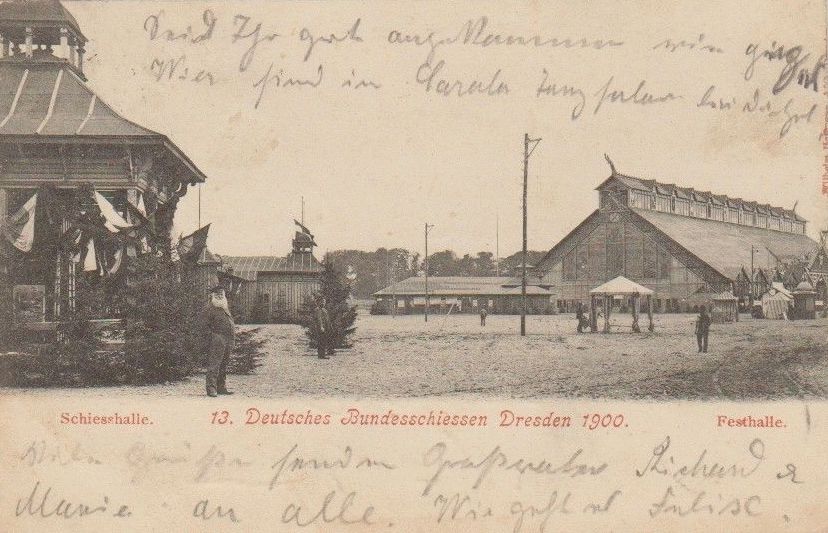 Seid Ihr gut angekommen wie ging
Wir sind in Carola Tanz
Schiesshalle. 13. Deutsches Bundesschiessen Dresden 1900. Festhalle.
Viele Grüße senden Großvater Richard &
Marie an alle. Wie geht es